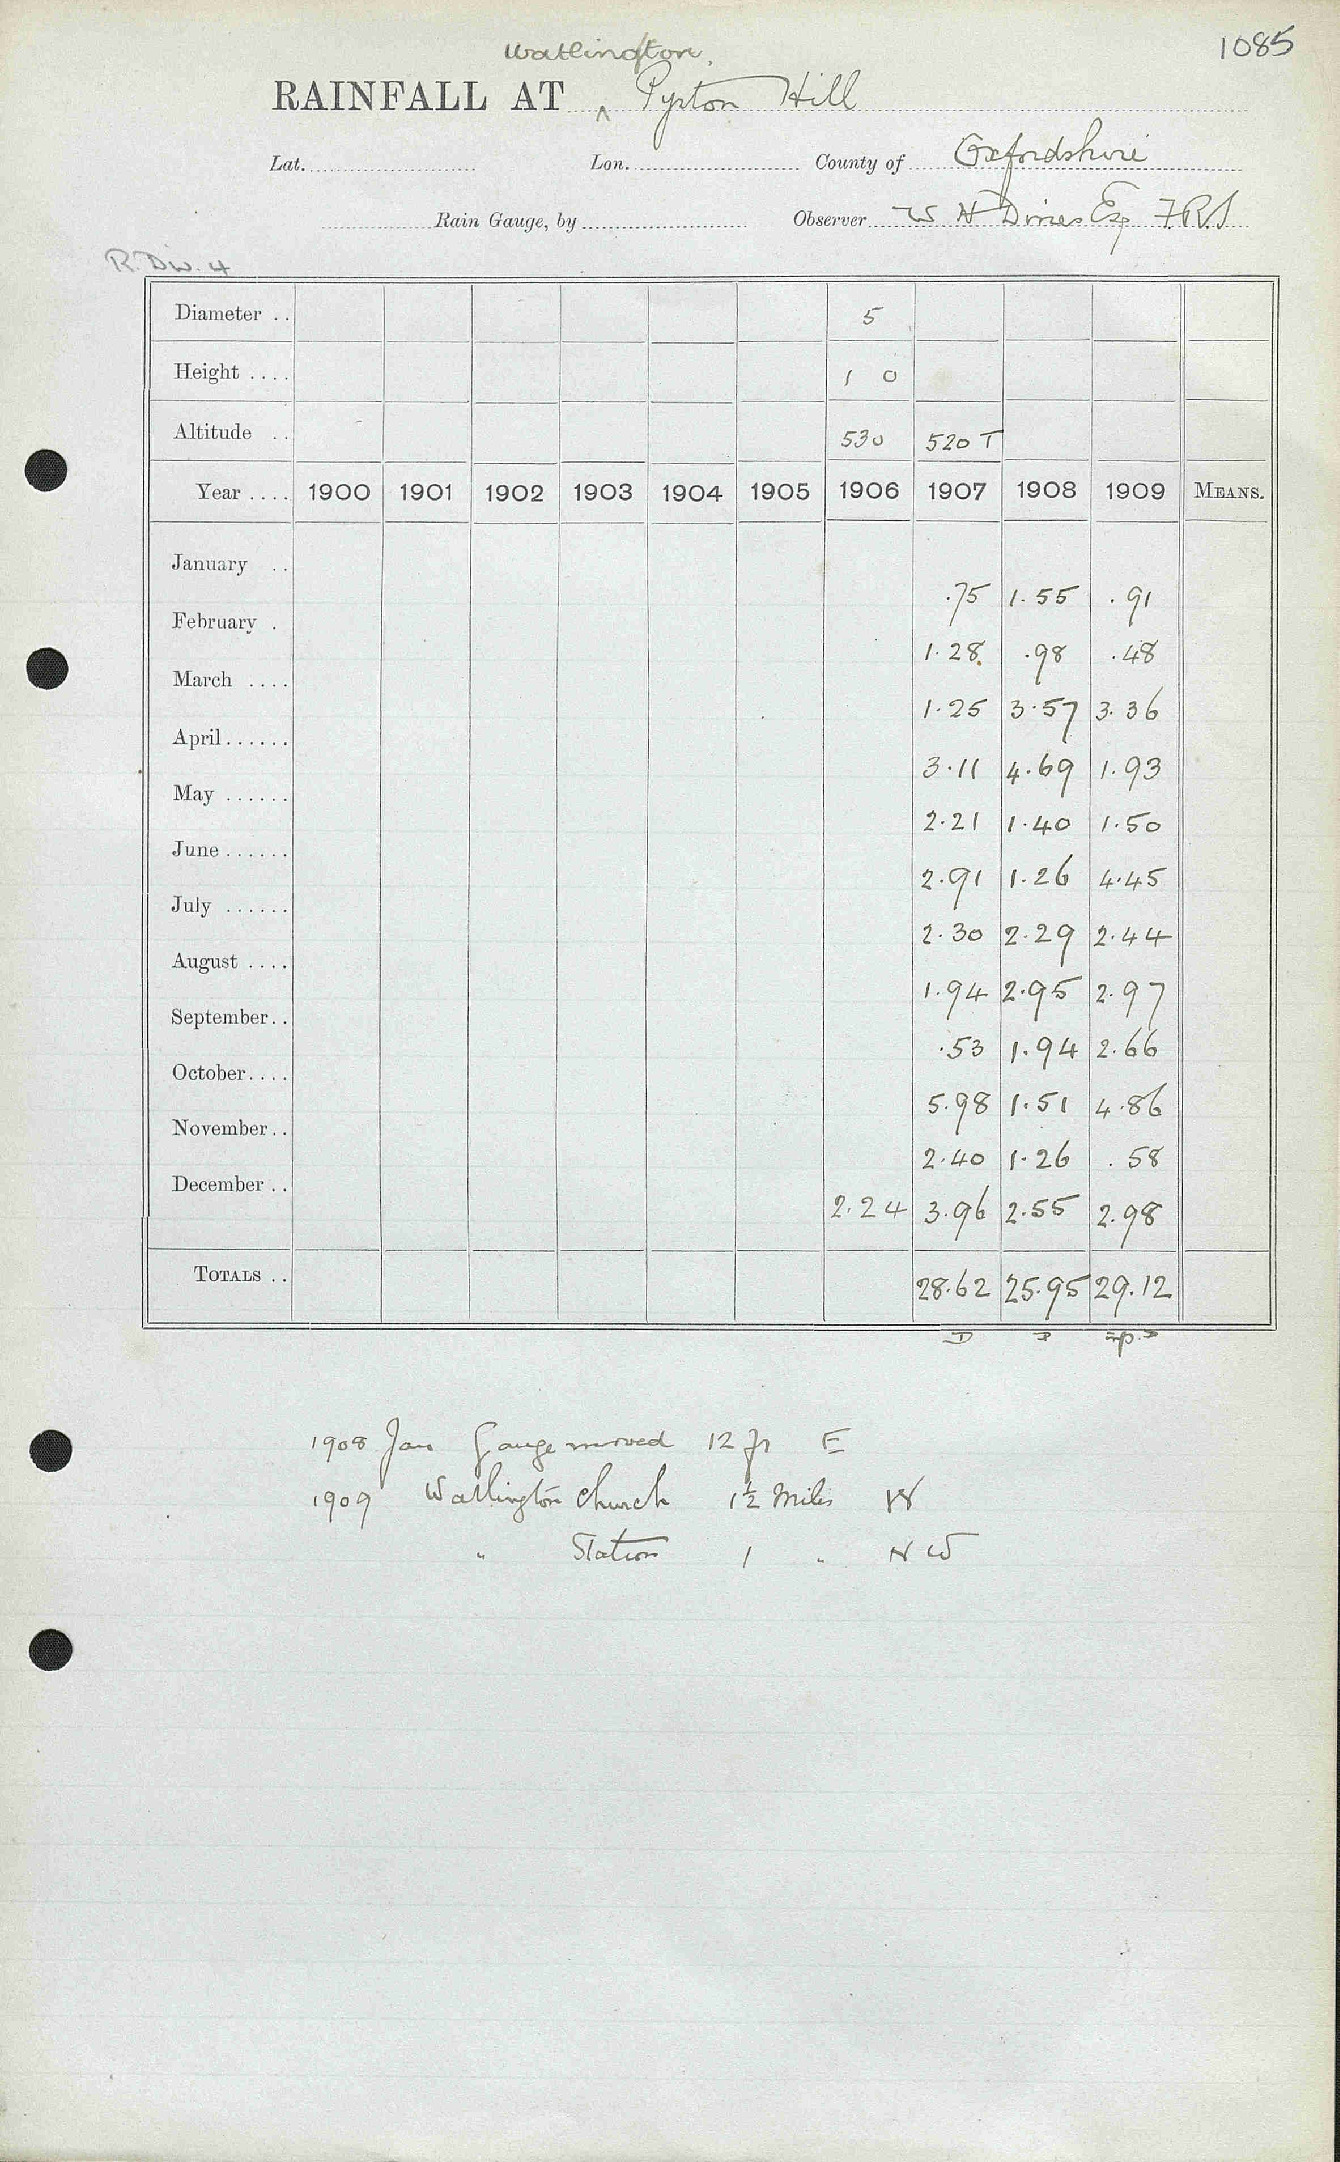 1085
Watlington,
RAINFALL AT ^ Pyrton Hill
Lat. Lon. County of Oxfordshire
Rain Gauge, by Observer W H Dines Esq F.R.S
R. Div. 4
Diameter .. 5
Height .... 1 0
Altitude .. 530 520 T
Year .... 1900 1901 1902 1903 1904 1905 1906 1907 1908 1909 MEANS.
January .. .75 1.55 .91
February . 1.28 .98 .48
March .... 1.25 3.57 3.36
April...... 3.11 4.69 1.93
May ...... 2.21 1.40 1.50
June ...... 2.91 1.26 4.45
July ...... 2.30 2.29 2.44
August .... 1.94 2.95 2.97
September.. .53 1.94 2.66
October.... 5.98 1.51 4.86
November.. 2.40 1.26 .58
December .. 2.24 3.96 2.55 2.98
TOTALS .. 28.62 25.95 29.12
1908 Jan Gauge moved 12 ft E
1909 Watlington Church 1½ Miles W
" Station 1 " N W